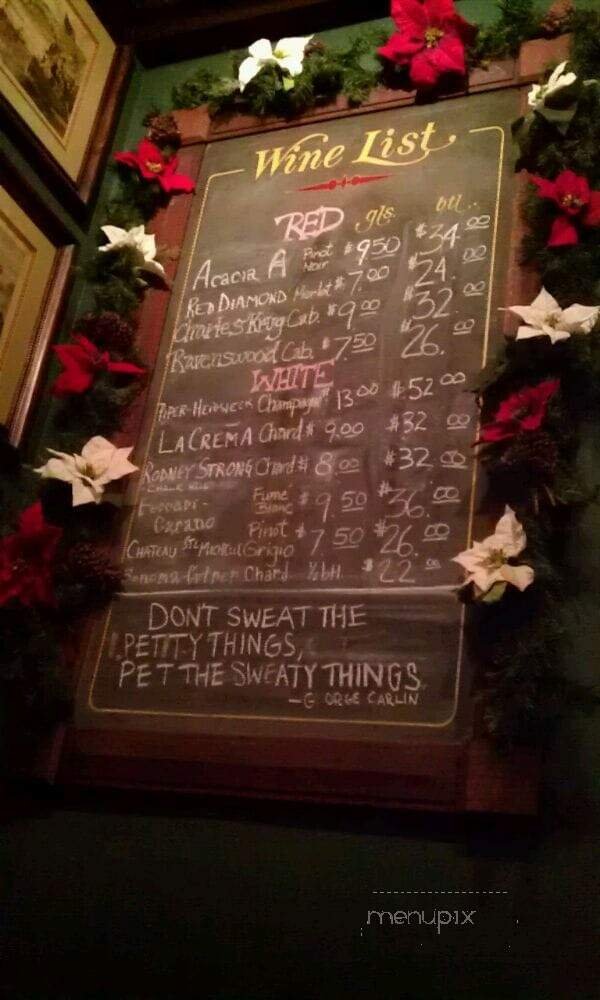 Wine List
RED gls. btl..
Acacia A Pinot Noir $9.50 $34.00
RED DIAMOND Merlot $7.00 $24.00
Charles Krug Cab. $9.00 $32.00
Ravenswood Cab. $7.50 $26.00
WHITE
PIPER-HEIDSIECK Champagne $13.00 $52.00
LA CREMA Chard $9.00 $32.00
RODNEY STRONG Chard $8.00 $32.00
Ferrari-Carano Fume Blanc $9.50 $36.00
CHATEAU STE MICHELLE Pinot Grigio $7.50 $26.00
Sonoma-Cutrer Chard ½ btl $22.00
DON'T SWEAT THE
PETTY THINGS,
PET THE SWEATY THINGS.
—G ORGE CARLIN
menupix